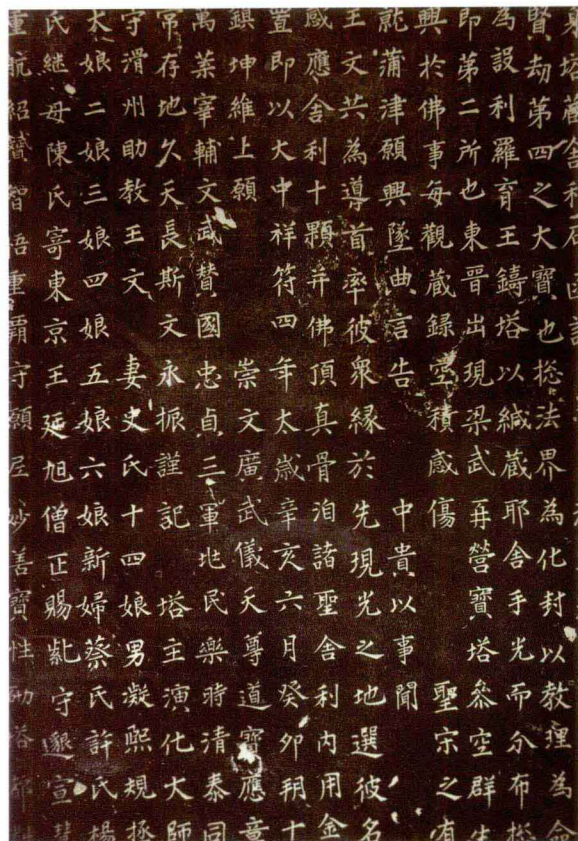 東塔藏舍利石
賢劫第四之大寶也捴法界為化封以教理為命
為設利羅育王鑄塔以緘藏耶舍手光而分布捴
即第二所也東晉出現梁武再營寶塔叅空群生
興於佛事每觀藏録空積感傷 聖宗之有
能蒲津願興墜曲言告 中貴以事聞
王文共為導首率彼衆縁於先現光之地選彼名
感應舍利十顆并佛頂真骨洎諸聖舍利内用金
置即以大中祥符四年太歲辛亥六月癸卯朔十
鎮坤維上願 崇文廣武儀天尊道寶應章
萬葉宰輔文武賛國忠貞三軍兆民樂時清泰同
常存地久天長斯文永振謹記 塔主演化大師
守滑州助教王文 妻史氏十四娘男凝熙規拯
大娘二娘三娘四娘五娘六娘新婦蔡氏許氏楊
氏継母陳氏寄東京王延旭僧正賜紫守懇宣
重航紹贇智悟重霸守願尼妙善寶性砌塔都